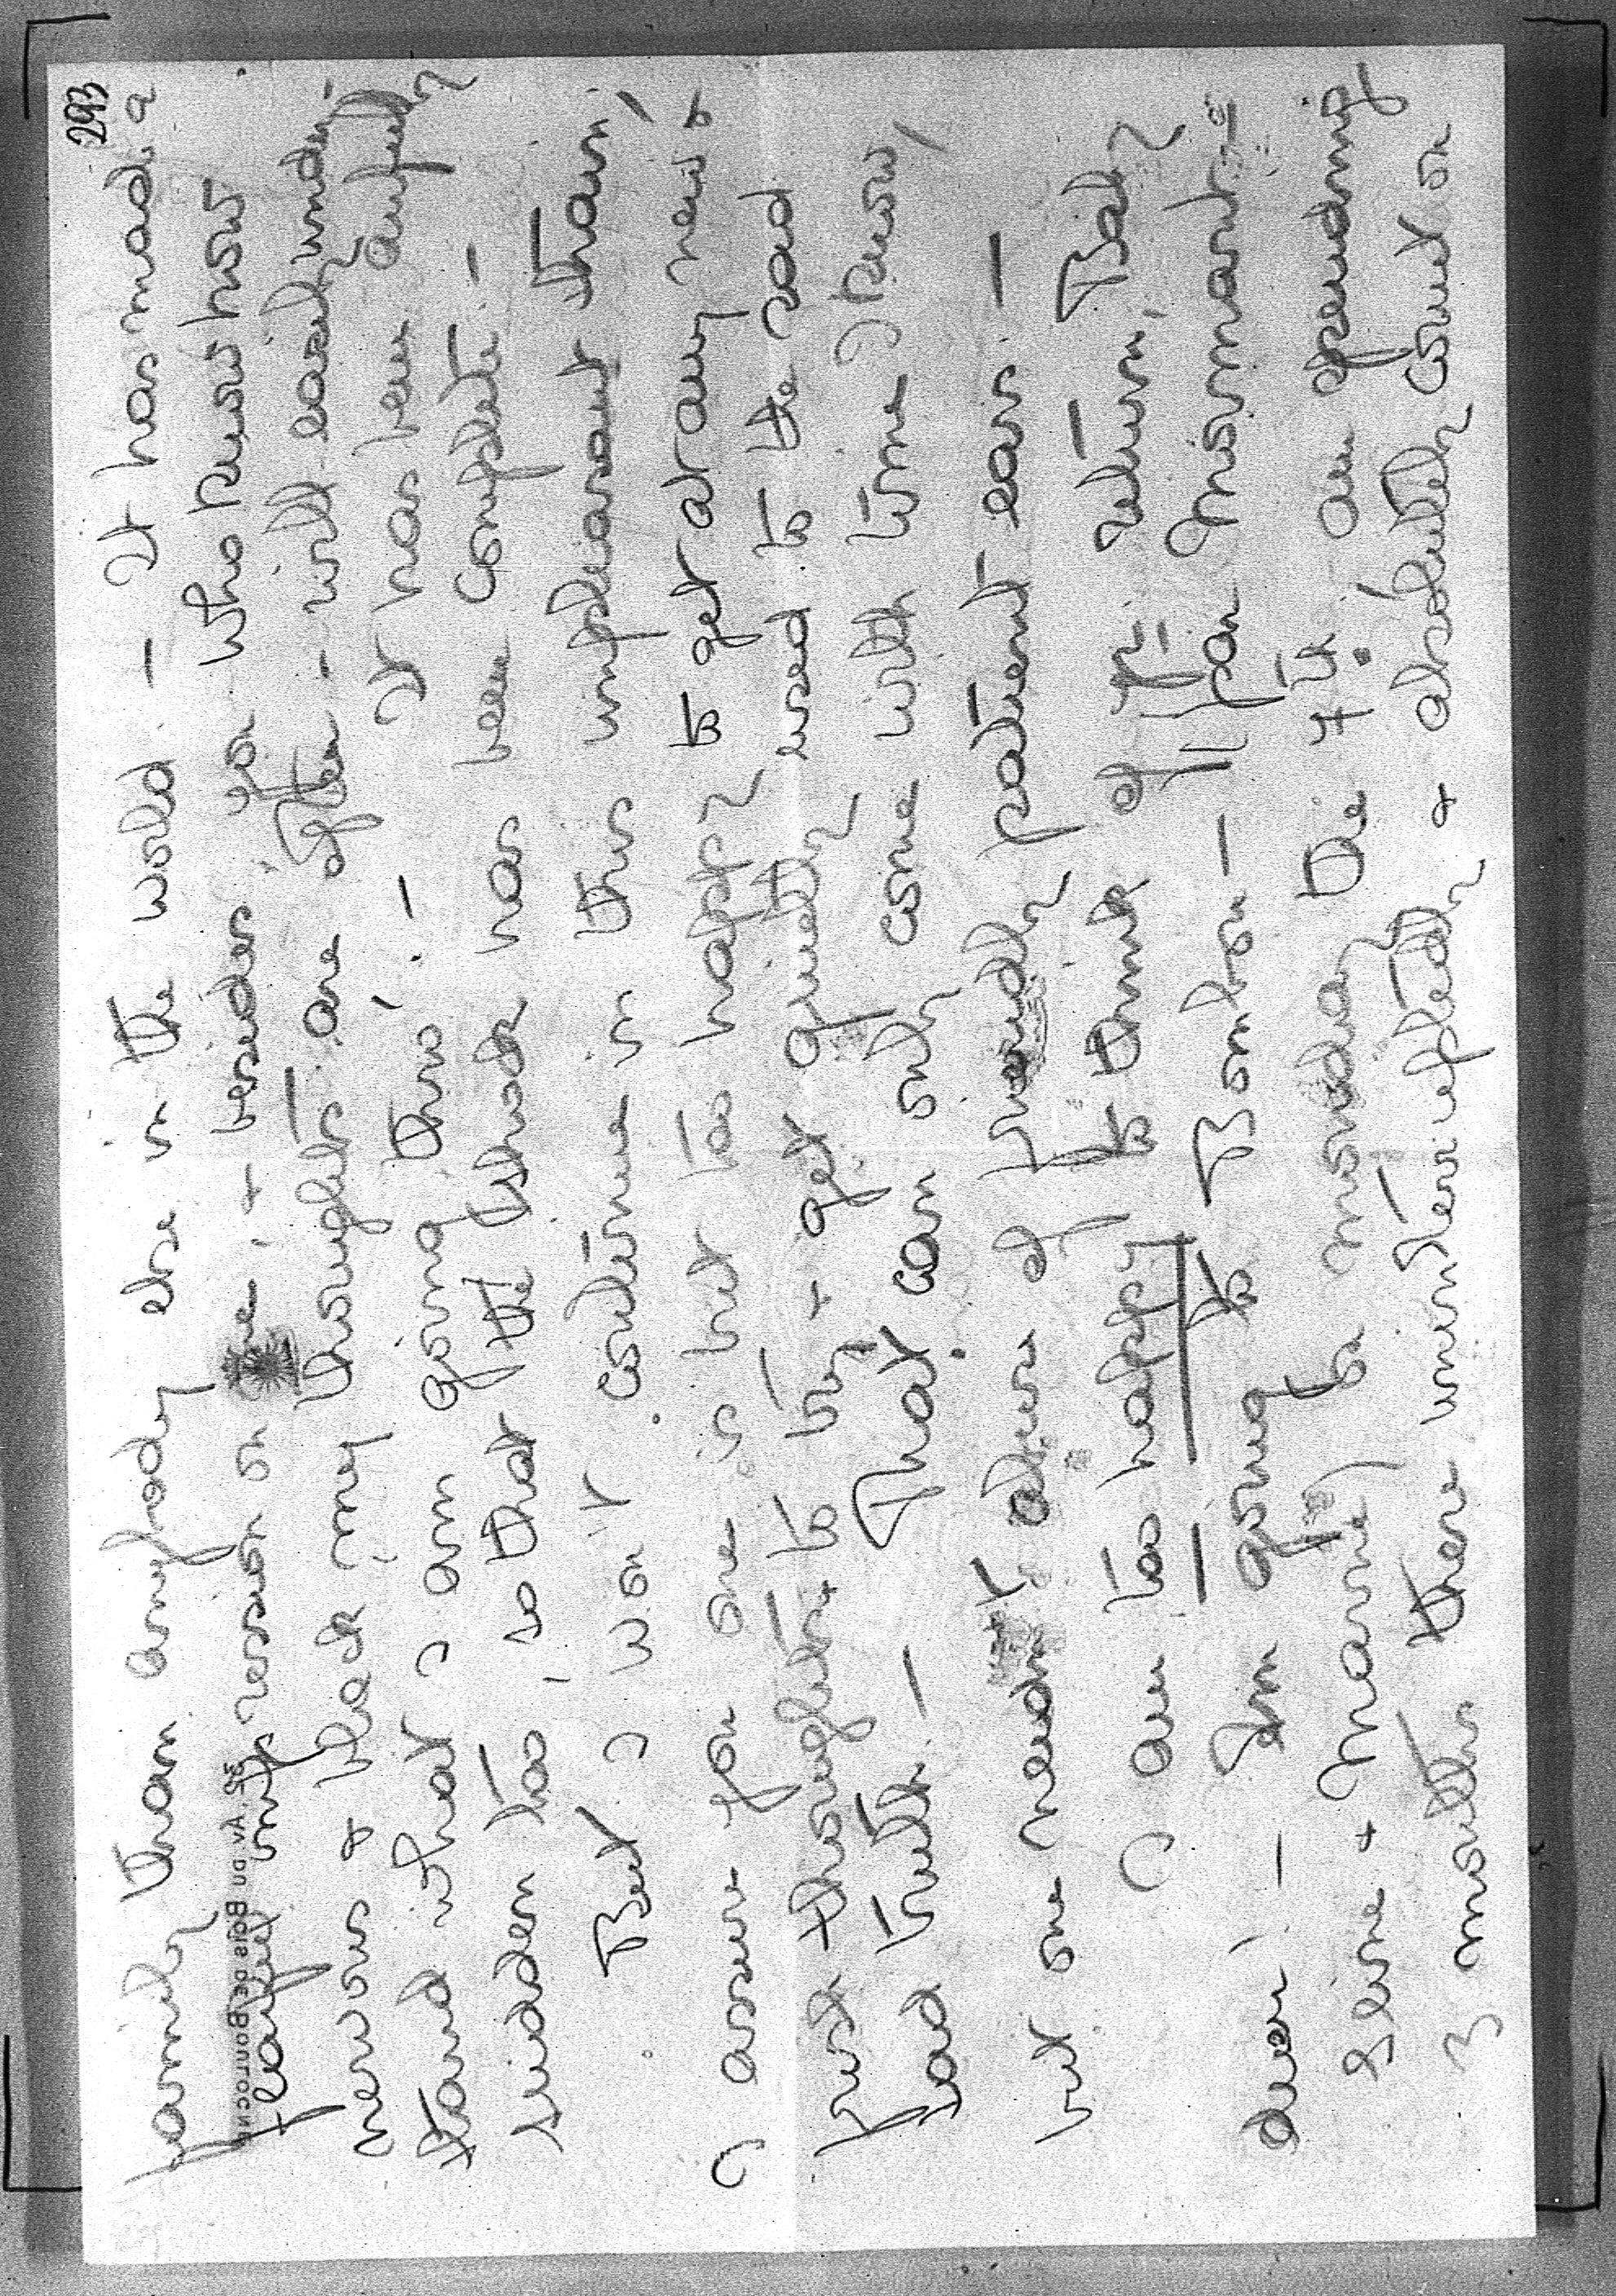 293
family than anybody else in the world — It has made a
fearful impression on me, & besides you who know how
nervous & black my thoughts are often – will easily under-
stand what I am going thro'! — It has been awfully
sudden too, so that the shock has been complete. —
But I won't continue in this unpleasant train,
I assure you one is but too happy to get at any new &
fresh thoughts, to try & get quietly used to the sad
sad truth. — That can only come with time I know,
but one needn't abuse of friendly patient ears. —
I am too happy to think of yr. return, Bally
dear, — I'm going to Bonbon — || par Mormant. —
Seine & Marne) for monday the 7th. am spending
3 months there uninterruptedly & absolutely count on
32, Av. du Bois de Boulogne